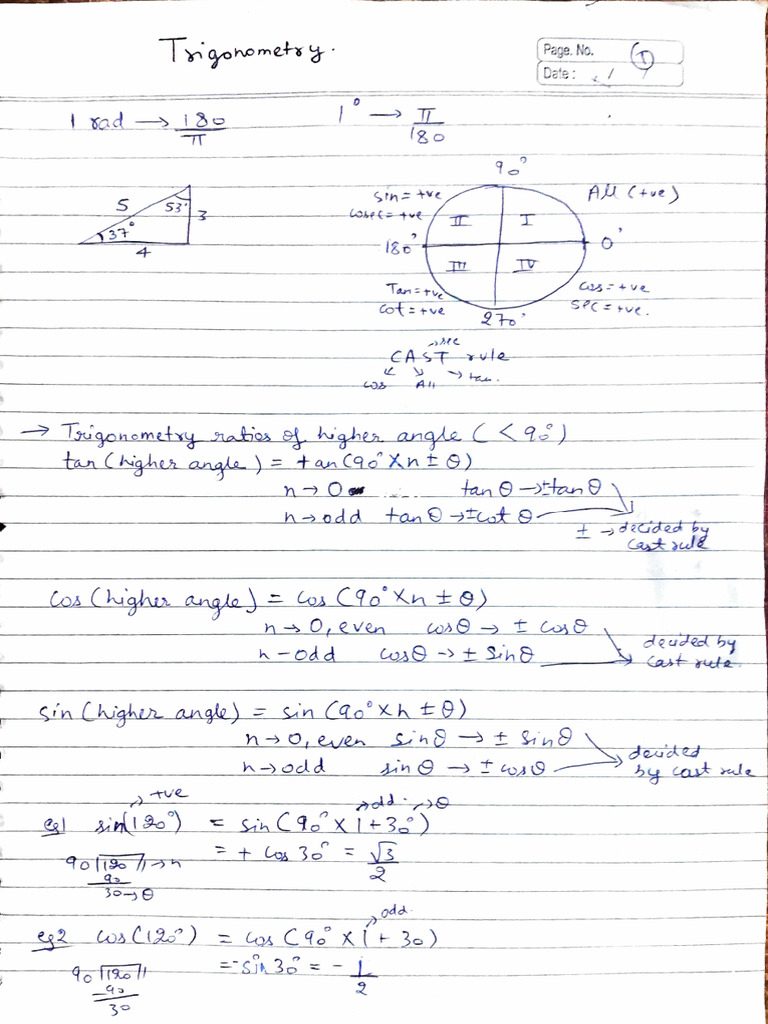 Trigonometry.
Page. No. 1
Date: / /
1 rad → 180/π
1° → π/180
90°
sin = +ve
cosec = +ve
All (+ve)
II I
180° 0°
III IV
Tan = +ve
cot = +ve
cos = +ve
sec = +ve.
270°
5 53° 3
37°
4
CAST rule
cos All → tan.
→ Trigonometry ratios of higher angle (< 90°)
tan (higher angle) = tan (90° × n ± θ)
n → 0 tan θ → ± tan θ
n → odd tan θ → ± cot θ
± → decided by
cast rule
cos (higher angle) = cos (90° × n ± θ)
n → 0, even cos θ → ± cos θ
n - odd cos θ → ± sin θ
decided by
cast rule.
sin (higher angle) = sin (90° × n ± θ)
n → 0, even sin θ → ± sin θ
n → odd sin θ → ± cos θ
decided
by cast rule
→ +ve → odd. → θ
eg1 sin(120°) = sin (90° × 1 + 30°)
= + cos 30° = √3/2
90 ) 120 ( 1 → n
90
30 → θ
→ odd.
eg2 cos (120°) = cos (90° × 1 + 30)
= - sin 30° = - 1/2
90 ) 120 ( 1
- 90
30